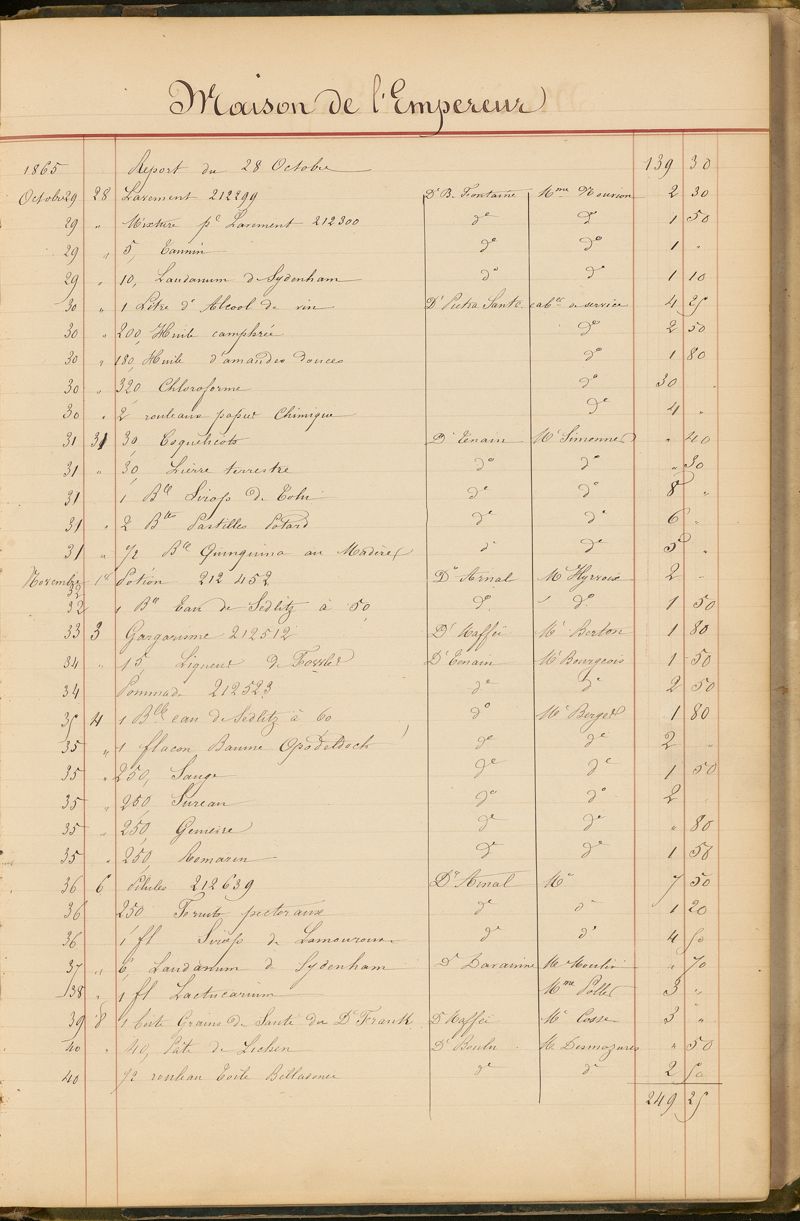 Maison de l'Empereur
1865 Report du 28 Octobre 139 30
Octobre 29 28 Lavement 212299 Dr B. Fontaine Mme 2 30
29 " Mixture pr Lavement 212300 do do 1 50
29 " 5, Tannin do do 1 "
29 " 10, Laudanum de Sydenham do do 1 10
30 " 1 Litre d'Alcool de vin Dr Pietra Santa de service 4 25
30 " 200, Huile camphrée do 2 50
30 " 180, Huile d'amandes douces do 1 80
30 " 320 Chloroforme do 30
30 " 2 rouleaux papier Chimique do 4 "
31 31 30, Coquelicots Dr Tenain Mr Simonnet " 40
31 " 30, Lierre terrestre do do " 30
31 1 Blle Sirop de Tolu do do 8 "
31 " 2 Btes Pastilles Potard do do 6 "
31 " 1/2 Blle Quinquina au Madère do do 5 "
Novembre 32 1er Potion 212452 Dr Arnal Mr Hyrvoix 2 "
32 1 Blle Eau de Sedlitz à 50 do " do 1 50
33 3 Gargarisme 212512 Dr Maffei Mr Berton 1 80
34 " 15, Liqueur de Dr Tenain Mr Bourgeois 1 50
34 Pommade 212523 do do 2 50
35 4 1 Blle eau de Sedlitz à 60 do Mr Berget 1 80
35 " 1 flacon Baume Opodeldoch do do 2 "
35 " 250, Sauge do do 1 50
35 " 250, Sureau do do 2 "
35 " 250, Genièvre do do " 80
35 " 250, Romarin do do 1 50
36 6 Pilules 212639 Dr Arnal Mr 7 50
36 250 Fruits pectoraux do do 1 20
36 1 fl Sirop de Lamouroux do do 4 50
37 " 6, Laudanum de Sydenham Dr Mr Moulin " 70
138 " 1 fl Lactucarium Mme Pollet 3 "
39 8 1 boite Grains de Santé du Dr Frank Dr Maffei Mr Cosse 3 "
40 " 40, Pâte de Lichen Dr Boulu Mr Desmazures " 50
40 1/2 rouleau Toile Belladonée do do 2 50
249 25